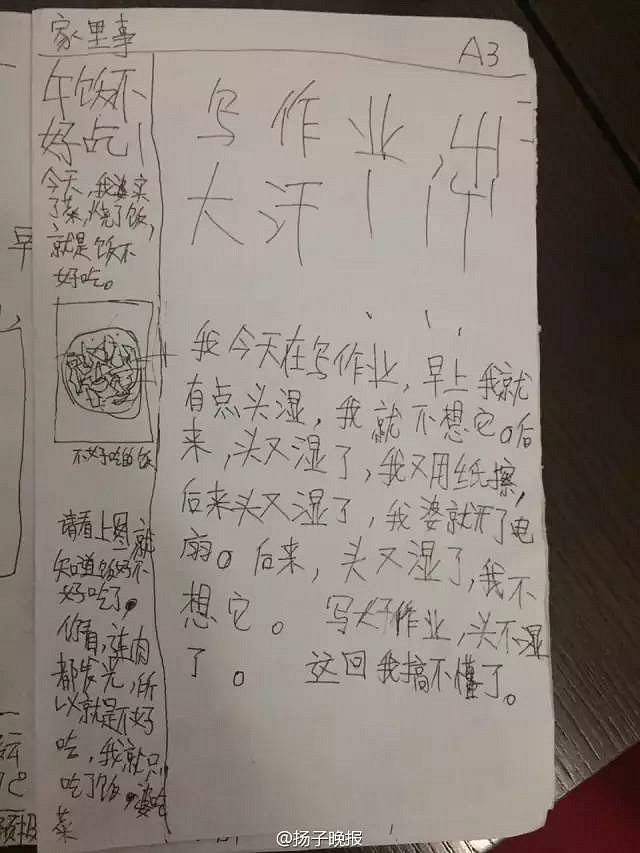 家里事
A3
午饭不
好吃！
今天,我婆买
了菜,烧了饭,
就是饭不
好吃。
不好吃的饭
请看上图就
知道饭好不
好吃了。
你看,连肉
都发光,所
以就是不好
吃,我就只
吃了饭。婆吃
菜
写作业,出
大汗！
我今天在写作业,早上我就
有点头湿,我就不想它。后
来,头又湿了,我又用纸擦,
后来头又湿了,我婆就开了电
扇。后来,头又湿了,我不
想它。写好作业,头不湿
了。这回我搞不懂了。
早
预报
@扬子晚报